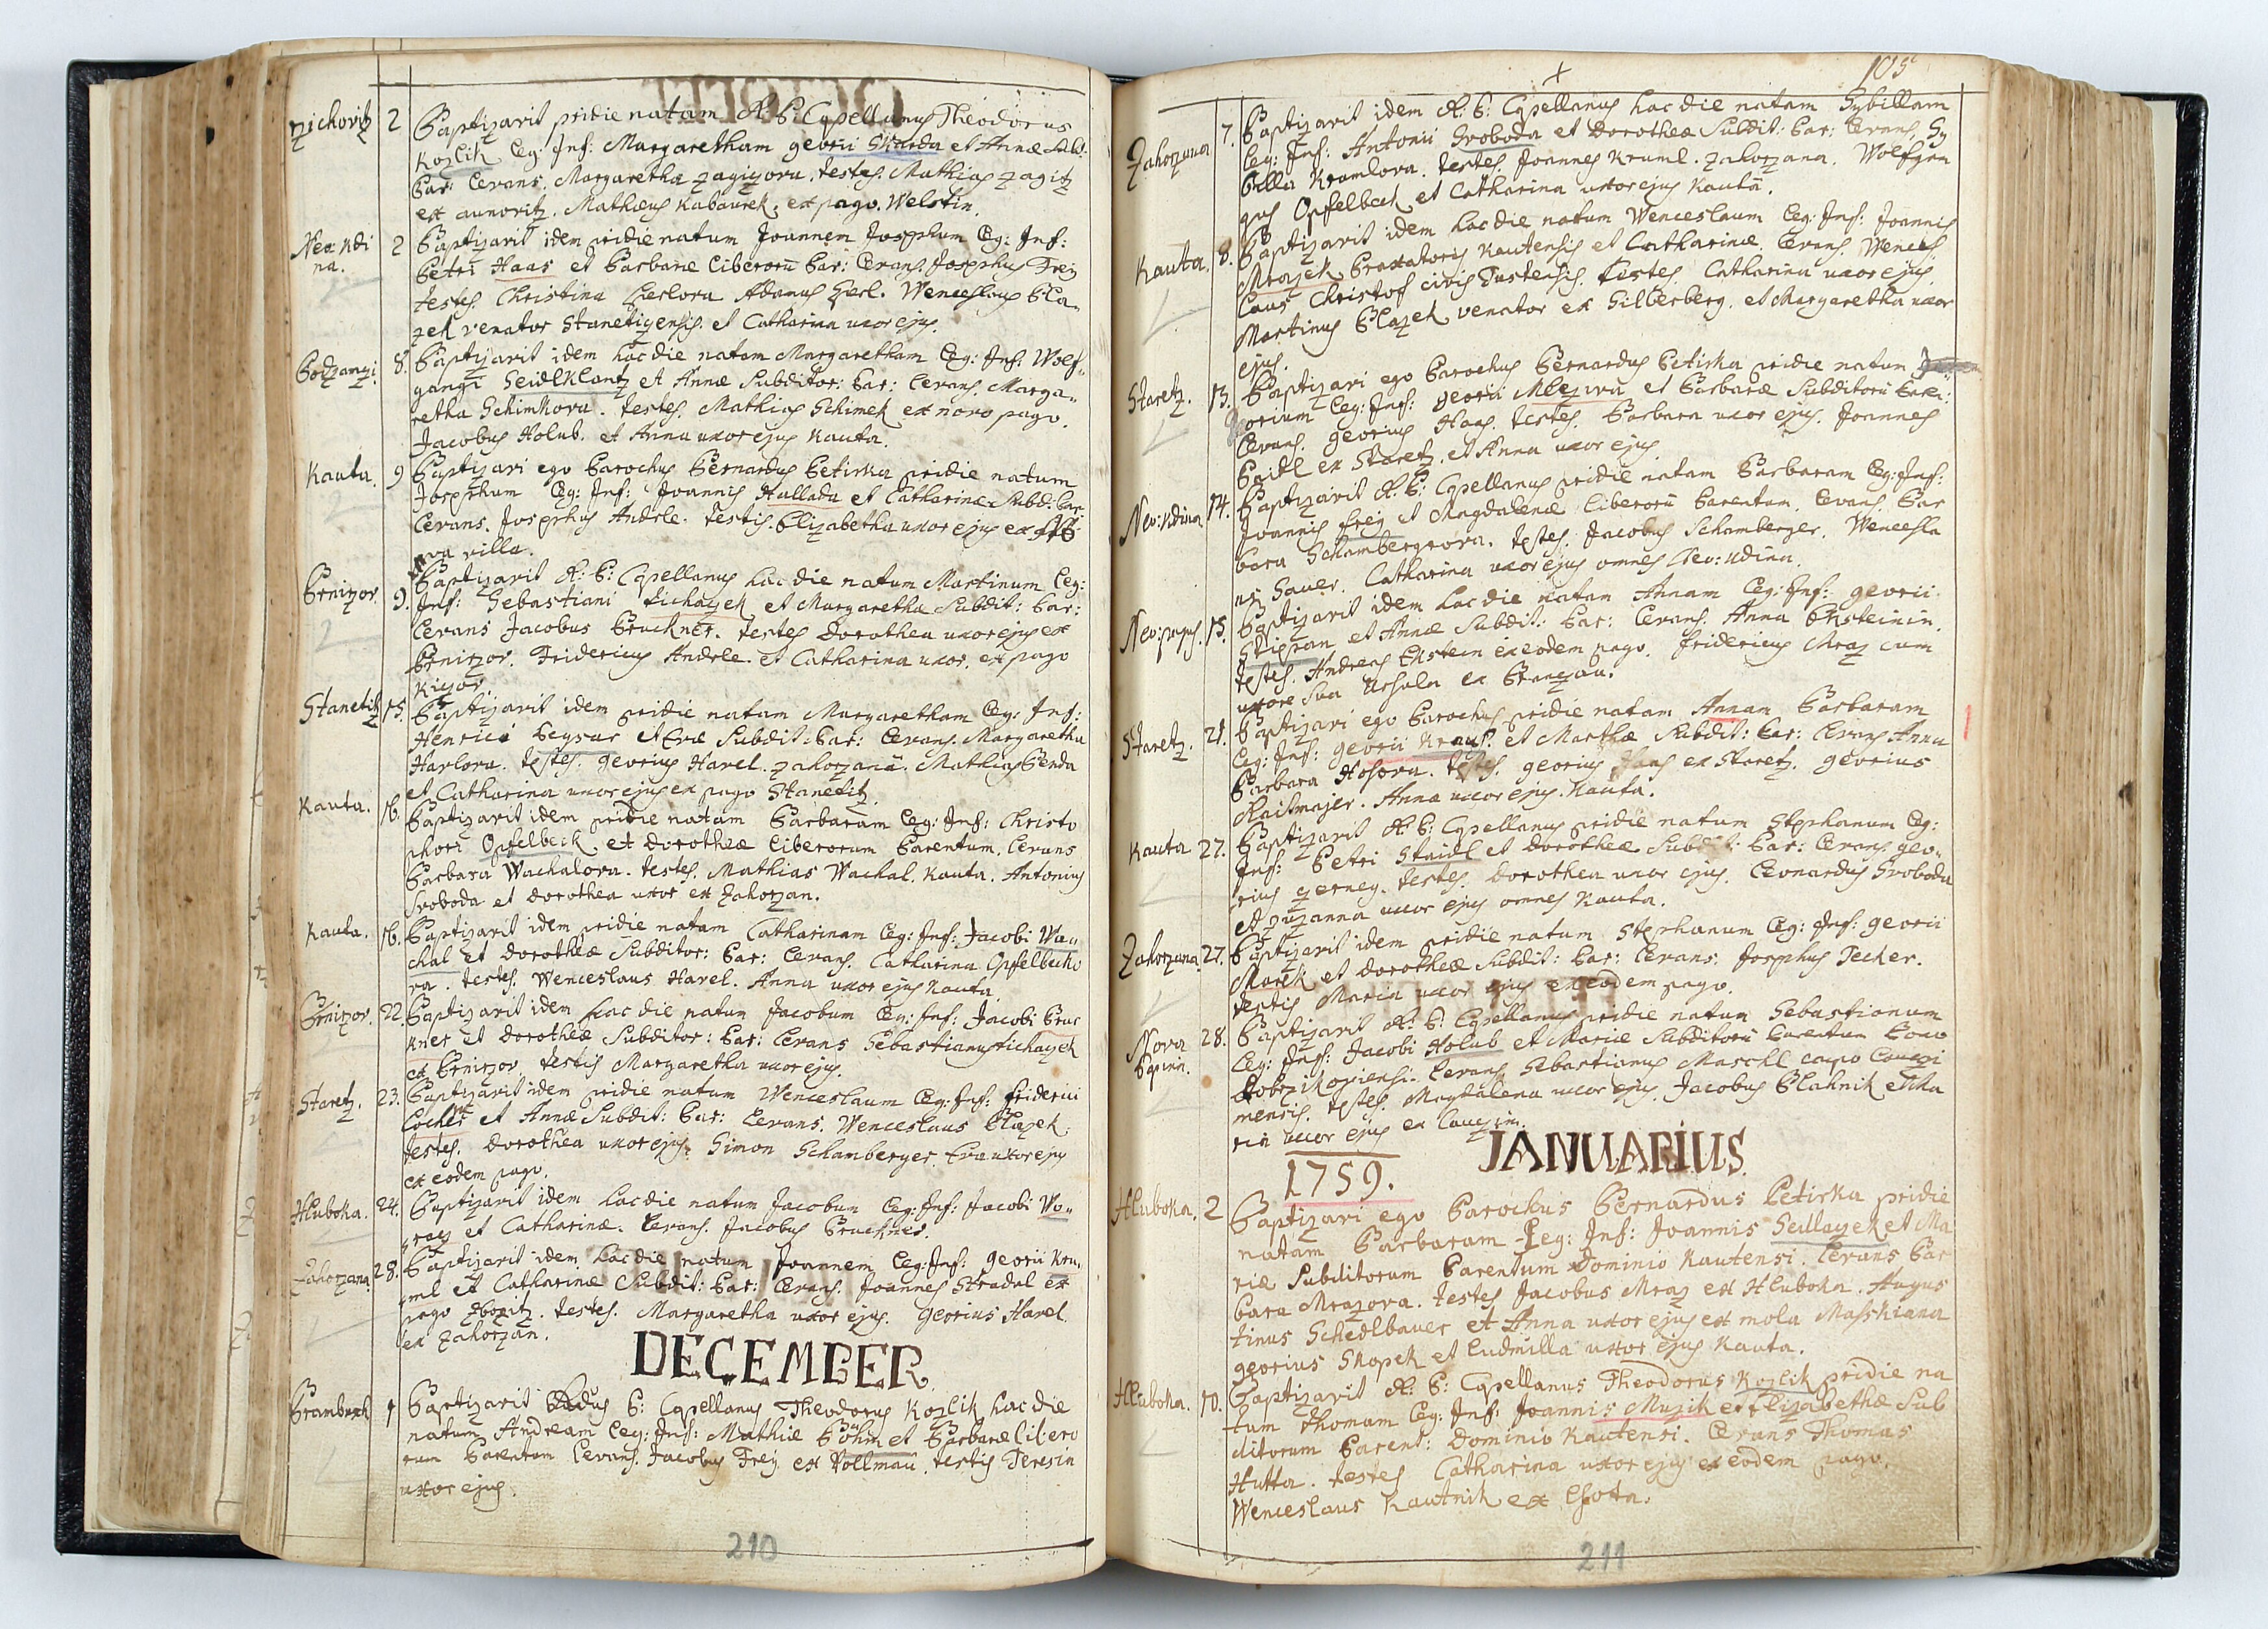 Zichovitz 2 Baptizavit pridie natam A: P: Capellanus Theodorus
Kozlik Leg: Inf: Margaretham georii Skarda et Annæ Subd:
Par: Levans. Margaretha Zagizova. testes. Mathias Zagitz
ex aunovitz. Mathæus Kabourek, ex pago. Welstin.
Neu Udi
na. 2 Baptizavit idem pridie natum Joannem Josephum Leg: Inf:
Petri Haas et Barbaræ liberorū Par: Levans. Josephus Freÿ
testes. Christina Herlova Adamus Herl. Wenceslaus Bla„
zek venator Stanetizensis. et Catharina uxor ejus.
8. Baptizavit idem hac die natam Margaretham Leg: Inf: Wolf„
gangi Seidlklantz et Annæ Subditor: Par: Levans. Marga„
retha Schimkova. testes. Mathias Schimek ex novo pago.
Jacobus Holub. et Anna uxor ejus Kauta.
Kauta. 9 Baptizavi ego Parochus Bernardus Petirka pridie natum
Josephum Leg: Inf: Joannis Hallada et Catharinæ Subd: Par:
Levans. Josephus Andrle. testis. Elizabetha uxor ejus ex
nova villa.
Brnirzov 9. Baptizavit A: P: Capellanus hac die natum Martinum Leg:
Inf: Sebastiani Tichaczek et Margaretha Subdit: Par:
Levans Jacobus Bruckner. testes Dorothea uxor ejus ex
Brnirzov. Fridericus Andrle. et Catharina uxor. ex pago
Kiczov.
Stanetitz 15. Baptizavit idem pridie natam Margaretham Leg: Inf:
Henrici Legsar et Evæ Subdit: Par: Levans. Margaretha
Havlova. testes. georius Havel. Zahorzana. Mathias Benda
et Catharina uxor ejus ex pago Stanetitz.
Kauta. 16. Baptizavit idem pridie natam Barbaram Leg: Inf: Christo
phori Opfelbeck. et Dorotheæ liberorum Parentum. Levans
Barbara Wachalova. testes. Mathias Wachal. Kauta. Antonius
Svoboda et Dorothea uxor ex Zahorzan.
Kauta. 16. Baptizavit idem pridie natam Catharinam Leg: Inf: Jacobi Wa„
chal et Dorotheæ Subditor: Par: Levans. Catharina Opfelbecko
va. testes. Wenceslaus Havel. Anna uxor ejus Kauta
Brnirzov. 22. Baptizavit idem hac die natum Jacobum Leg: Inf: Jacobi Bruc
kner et Dorotheæ Subditor: Par: Levans Sebastianus Tichaczek
ex Brnirzov. testis Margaretha uxor ejus.
Staretz. 23. Baptizavit idem pridie natum Wenceslaum Leg: Inf: Friderici
et Annæ Subdit: Par: Levans. Wenceslaus Blazek.
testes. Dorothea uxor ejus. Simon Schamberger. Eva uxor ejus
ex eodem pago.
Hluboka. 24. Baptizavit idem hac die natum Jacobum Leg: Inf: Jacobi Wo„
et Catharinæ. Levans. Jacobus Bruckner.
Zahorzana 28. Baptizavit idem hac die natum Joannem Leg: Inf: georii Kru„
ml et Catharinæ Subdit: Par: Levans. Joannes Stradal ex
pago Zborzitz. testes. Margaretha uxor ejus. georius Havel.
ex Zahorzan.
DECEMBER.
1 Baptizavit P: Capellanus Theodorus Kozlik hac die
natum Andream Leg: Inf: Mathiæ Böhm et Barbaræ libero
rum Parentum Levans. Jacobus Freÿ ex Vollmau. testis Teresia
uxor ejus.
210
105
Zahorzana 7. Baptizavit idem A: P: Capellanus hac die natam Sybillam
Leg: Inf: Antonii Svoboda et Dorotheæ Subdit: Par: Levans. Sy
billa Kramlova. testes. Joannes Kruml. Zahorzana. Wolfgan
gus Opfelbeck et Catharina uxor ejus Kauta.
Kauta. 8. Baptizavit idem hac die natum Wenceslaum Leg: Inf: Joannis
Mrazek Braxatoris Kautensis et Catharinæ. Levans. Wences„
laus Christof civis Tustensis. testes. Catharina uxor ejus.
Martinus Blazek venator ex Silberberg. et Margaretha uxor
ejus.
Staretz. 13. Baptizavi ego Parochus Bernardus Petirka pridie natum
georium Leg: Inf: georii Mlezivu et Barbaræ Subditorū Par:
Levans. georius Haas. testes. Barbara uxor ejus. Joannes
Beidl ex Staretz. et Anna uxor ejus.
Neu: Udina 14. Baptizavit A: P: Capellanus pridie natam Barbaram Leg: Inf:
Joannis Freÿ et Magdalenæ liberorū Parentum. Levans. Bar
bara Schambergrova. testes. Jacobus Schamberger. Wencesla
us Sauer. Catharina uxor ejus omnes Neu: Udina.
15. Baptizavit idem hac die natam Annam Leg: Inf: georii
Stipran et Annæ Subdit: Par: Levans. Anna Eksteinin.
testes. Andreas Ekstein ex eodem pago. Fridericus Mraz cum
uxore sua Ursula ex
Staretz. 21. Baptizavi ego Parochus pridie natam Annam Barbaram
Leg: Inf: georii Kraus. et Marthæ Subdit: Par: Levans Anna
Barbara Hosova. testes. georius Haas ex Staretz. georius
Railmajer. Anna uxor ejus. Kauta.
Kauta 27. Baptizavit A: P: Capellanus pridie natum Stephanum Leg:
Inf: Petri Staidl et Dorotheæ Subdit: Par: Levans. geo„
rius Zerney. testes. Dorothea uxor ejus. Leonardus Svoboda
et Zuzanna uxor ejus omnes Kauta.
Zahorzana. 27. Baptizavit idem pridie natum Stephanum Leg: Inf: georii
Marek et Dorotheæ Subdit: Par: Levans. Josephus Techer.
testis Maria uxor ejus ex eodem pago.
Nova 28. Baptizavit A: P: Capellanus pridie natum Sebastianum
Leg: Inf: Jacobi Holub et Mariæ Subditorū Parentum
Levans Sebastianus Maschl
mensis. testes. Magdalena uxor ejus. Jacobus Blahnik et Ma
ria uxor ejus ex
JANUARIUS
1759.
Hluboka. 2 Baptizavi ego Parochus Bernardus Petirka pridie
natam Barbaram Leg: Inf: Joannis Sedlaczek et Ma
riæ Subditorum Parentum Dominio Kautensi. Levans Bar
bara Mrazova. testes Jacobus Mraz ex Hluboka. Augus
tinus Schedlbauer et Anna uxor ejus ex mola Masskiana
georius Skopek et Ludmilla uxor ejus Kauta.
Hluboka. 10. Baptizavit A: P: Capellanus Theodorus Kozlik pridie na
tum Thomam Leg: Inf: Joannis Muzik et Elizabethæ Sub
ditorum Parent: Dominio Kautensi. Levans Thomas
Hutta. testes Catharina uxor ejus ex eodem pago.
Wenceslaus Kautnik ex Lhota.
211